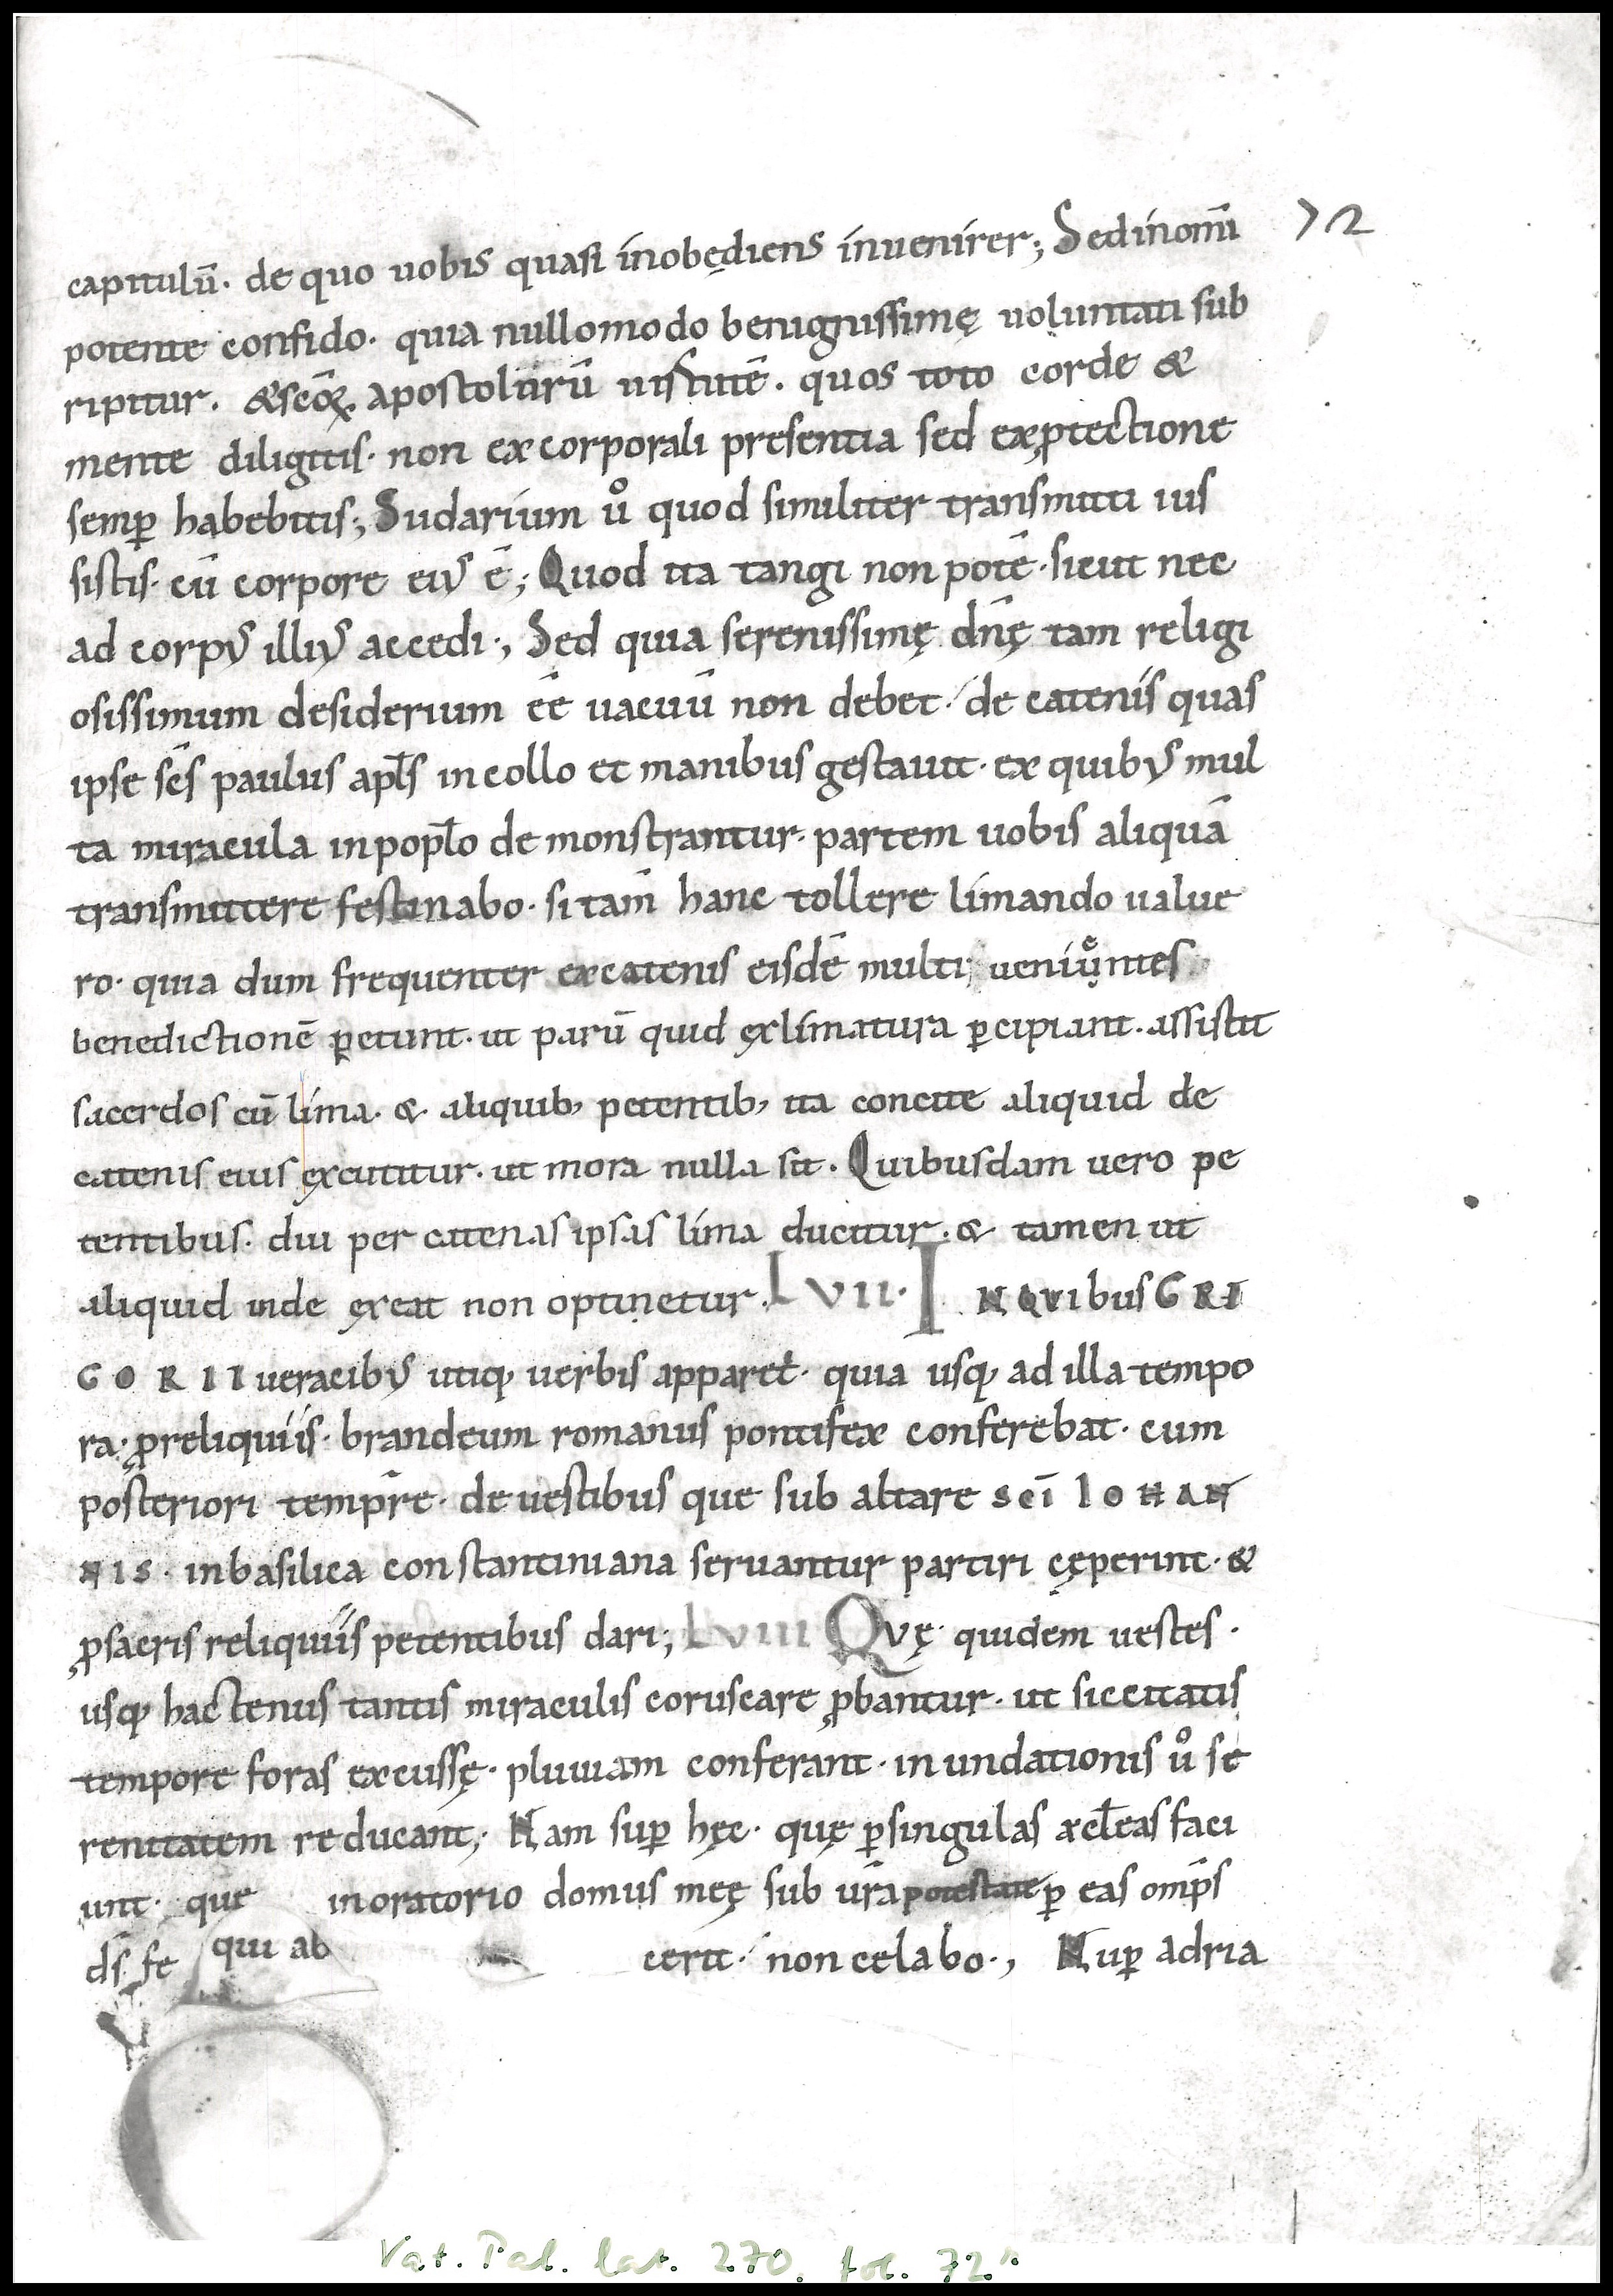 capitulū. de quo uobis quasi inobędiens inuenirer; Sed inomī
72
potente confido. quia nullomodo benignissimę uoluntati sub
ripitur. &scōꝝ apostolorū uirtutē. quos toto corde &
mente diligitis. non ex corporali presentia sed ex ꝓtectione
semꝑ habebitis; Sudarium uͦ quod similiter transmitti ius
sistis. cū corpore eiꝰ ē; Quod ita tangi non potē. sicut nec
ad corpꝰ illiꝰ accedi; Sed quia serenissimę dn̄ę tam religi
osissimum desiderium eē uacuū non debet. de catenis quas
ipse sc̄s paulus apl̄s in collo et manibus gestauit. ex quibꝰ mul
ta miracula in popl̄o demonstrantur. partem uobis aliquā
transmittere festinabo. si tam̄ hanc tollere limando ualue
ro. quia dum frequenter ex catenis eisdē multi ueniuͤntes
benedictionē petunt. ut parū quid ex limatura ꝑcipiant. assistit
sacerdos cū lima. & aliquib; petentib; ita concite aliquid de
catenis eius excutitur. ut mora nulla sit. Quibusdam uero pe
tentibus. diu per catenas ipsas lima ducitur. & tamen ut
aliquid inde exeat non optinetur. LVII. IN QVibus GRI
GORII ueracibꝰ utiq; uerbis apparet. quia usq; ad illa tempo
ra. ꝓ reliquiis. brandeum romanus pontifex conferebat. cum
posteriori temp̄re. de uestibus que sub altare sc̄i IOHAN
NIS. in basilica constantiniana seruantur partiri cęperint. &
ꝓ sacris reliquiis petentibus dari; LVIII QVę quidem uestes.
usq; hactenus tantis miraculis coruscare ꝓbantur. ut siccitatis
tempore foras excussę. pluuiam conferant. inundationis uͦ se
renitatem reducant; Nam suꝑ hęc. quę ꝑ singulas aecl̄eas faci
unt. que in oratorio domus meę sub ur̄a potestate ꝑ eas omp̄s
ds̄ fe qui ab cerit. non celabo; Nuꝑ adria
Vat. Pal. lat. 270. fol. 72r